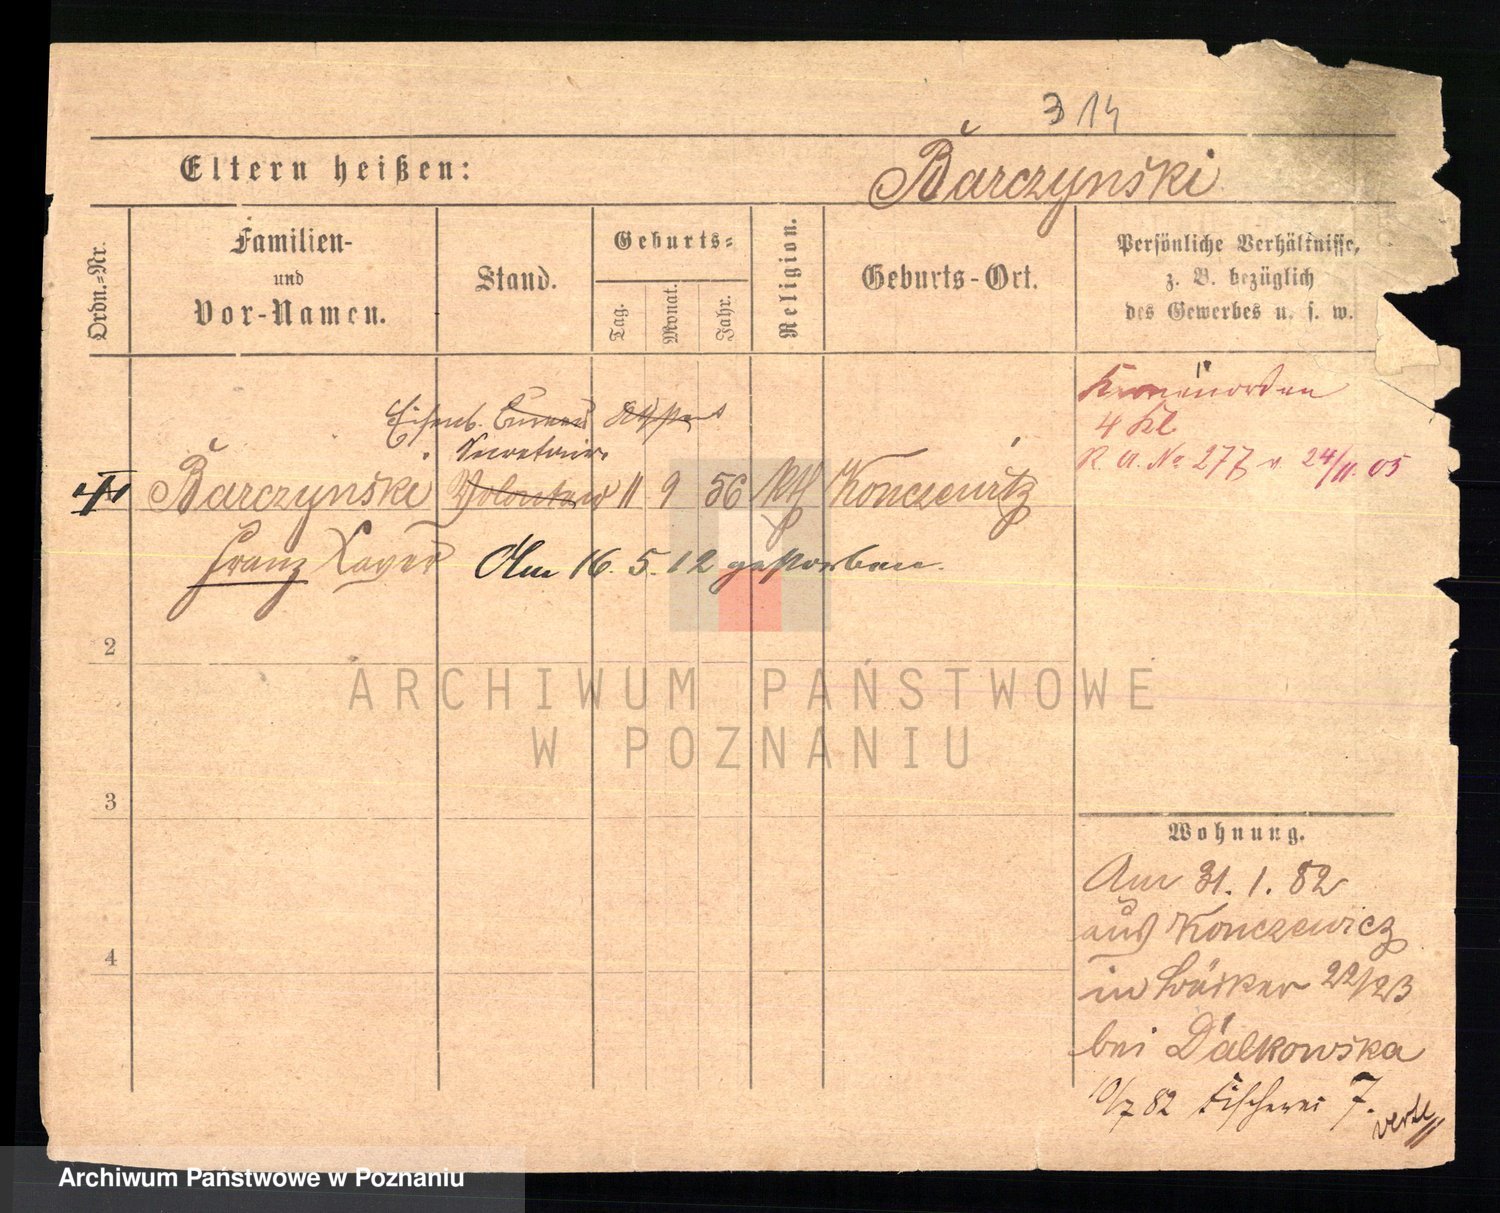 314
Eltern heißen: Barczynski
Ordn.-Nr.
Familien-
und
Vor-Namen.
Stand.
Geburts-
Tag.
Monat.
Jahr.
Religion.
Geburts-Ort.
Persönliche Verhältnisse,
z. B. bezüglich
des Gewerbes u. s. w.
Kronenorden
4 Kl
R. A. No 277 v. 24/11. 05
Eisenb. Bureau Assistent
Secretair
Barczynski 11 9 56 Kth Konczewitz
Franz Xaver Am 16. 5. 12 gestorben.
2
3
4
Wohnung.
Am 31. 1. 82
aus Konczewicz
in 22/23
bei Dalkowska
10/7 82 Fischerei 7.
verte
ARCHIWUM PAŃSTWOWE
W POZNANIU
Archiwum Państwowe w Poznaniu